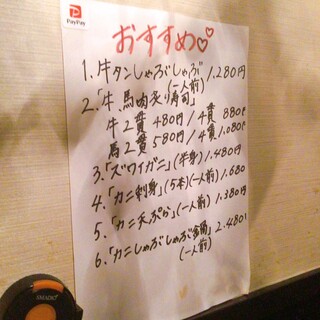 PayPay
おすすめ♡♡
1.牛タンしゃぶしゃぶ 1.280円
(一人前)
2.「牛、馬肉炙り寿司」
牛2貫 480円/4貫 880円
馬2貫 580円/4貫 1.080円
3.「ズワイガニ」(半身) 1.480円
4.「カニ刺身」(5本)(一人前) 1.680
5.「カニ天ぷら」(一人前) 1.380円
6.「カニしゃぶしゃぶ 2.480
(一人前)